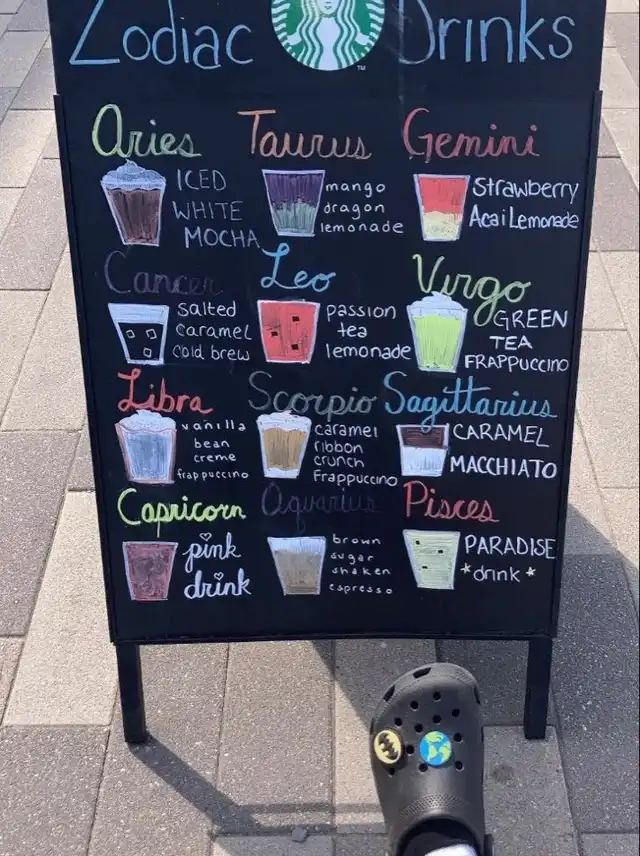 Zodiac Drinks
Aries
ICED
WHITE
MOCHA
Taurus
mango
dragon
lemonade
Gemini
Strawberry
Acai Lemonade
Cancer
salted
caramel
cold brew
Leo
passion
tea
lemonade
Virgo
GREEN
TEA
FRAPPUCCINO
Libra
vanilla
bean
creme
frappuccino
Scorpio
caramel
ribbon
crunch
Frappuccino
Sagittarius
CARAMEL
MACCHIATO
Capricorn
pink
drink
Aquarius
brown
sugar
shaken
espresso
Pisces
PARADISE
*drink*
TM